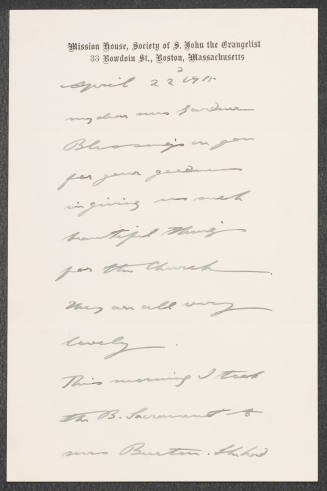 Mission House, Society of S. John the Evangelist
33 Bowdoin St., Boston, Massachusetts
April 22
my dear Mrs Gardner
Blessings on you
for your goodness
in giving us such
beautiful things
for the Church
They are all very
lovely.
This morning I took
the B. Sacrament to
Mrs Burton. She had